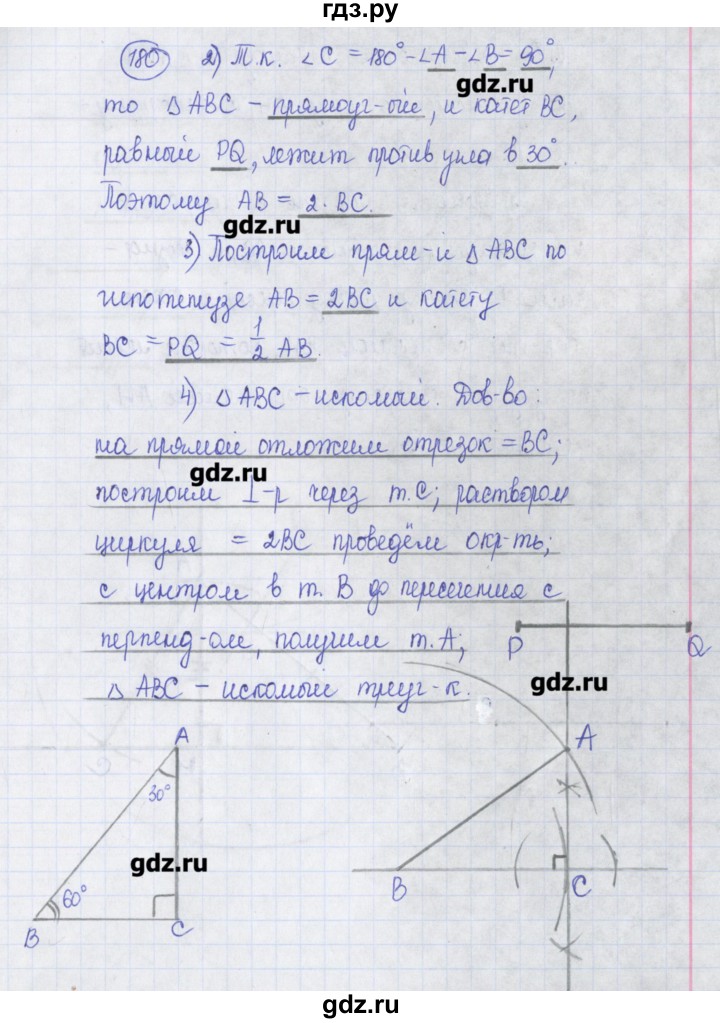 гдз.ру
180 2) Т.к. ∠C = 180° - ∠A - ∠B = 90°,
gdz.ru
то △ABC - прямоуг-ый, и катет BC,
равный PQ, лежит против угла в 30°.
Поэтому AB = 2·BC.
gdz.ru
3) Построим прям-й △ABC по
гипотенузе AB = 2BC и катету
BC = PQ = 1/2 AB.
4) △ABC - искомый. Док-во:
на прямой отложим отрезок = BC;
gdz.ru
построим ⊥-р через т.C; раствором
циркуля = 2BC проведём окр-ть;
с центром в т. B до пересечения с
перпенд-ом, получим т.A;
△ABC - искомый треуг-к.
P Q
gdz.ru
A
30°
60°
B C
gdz.ru
A
B C
gdz.ru